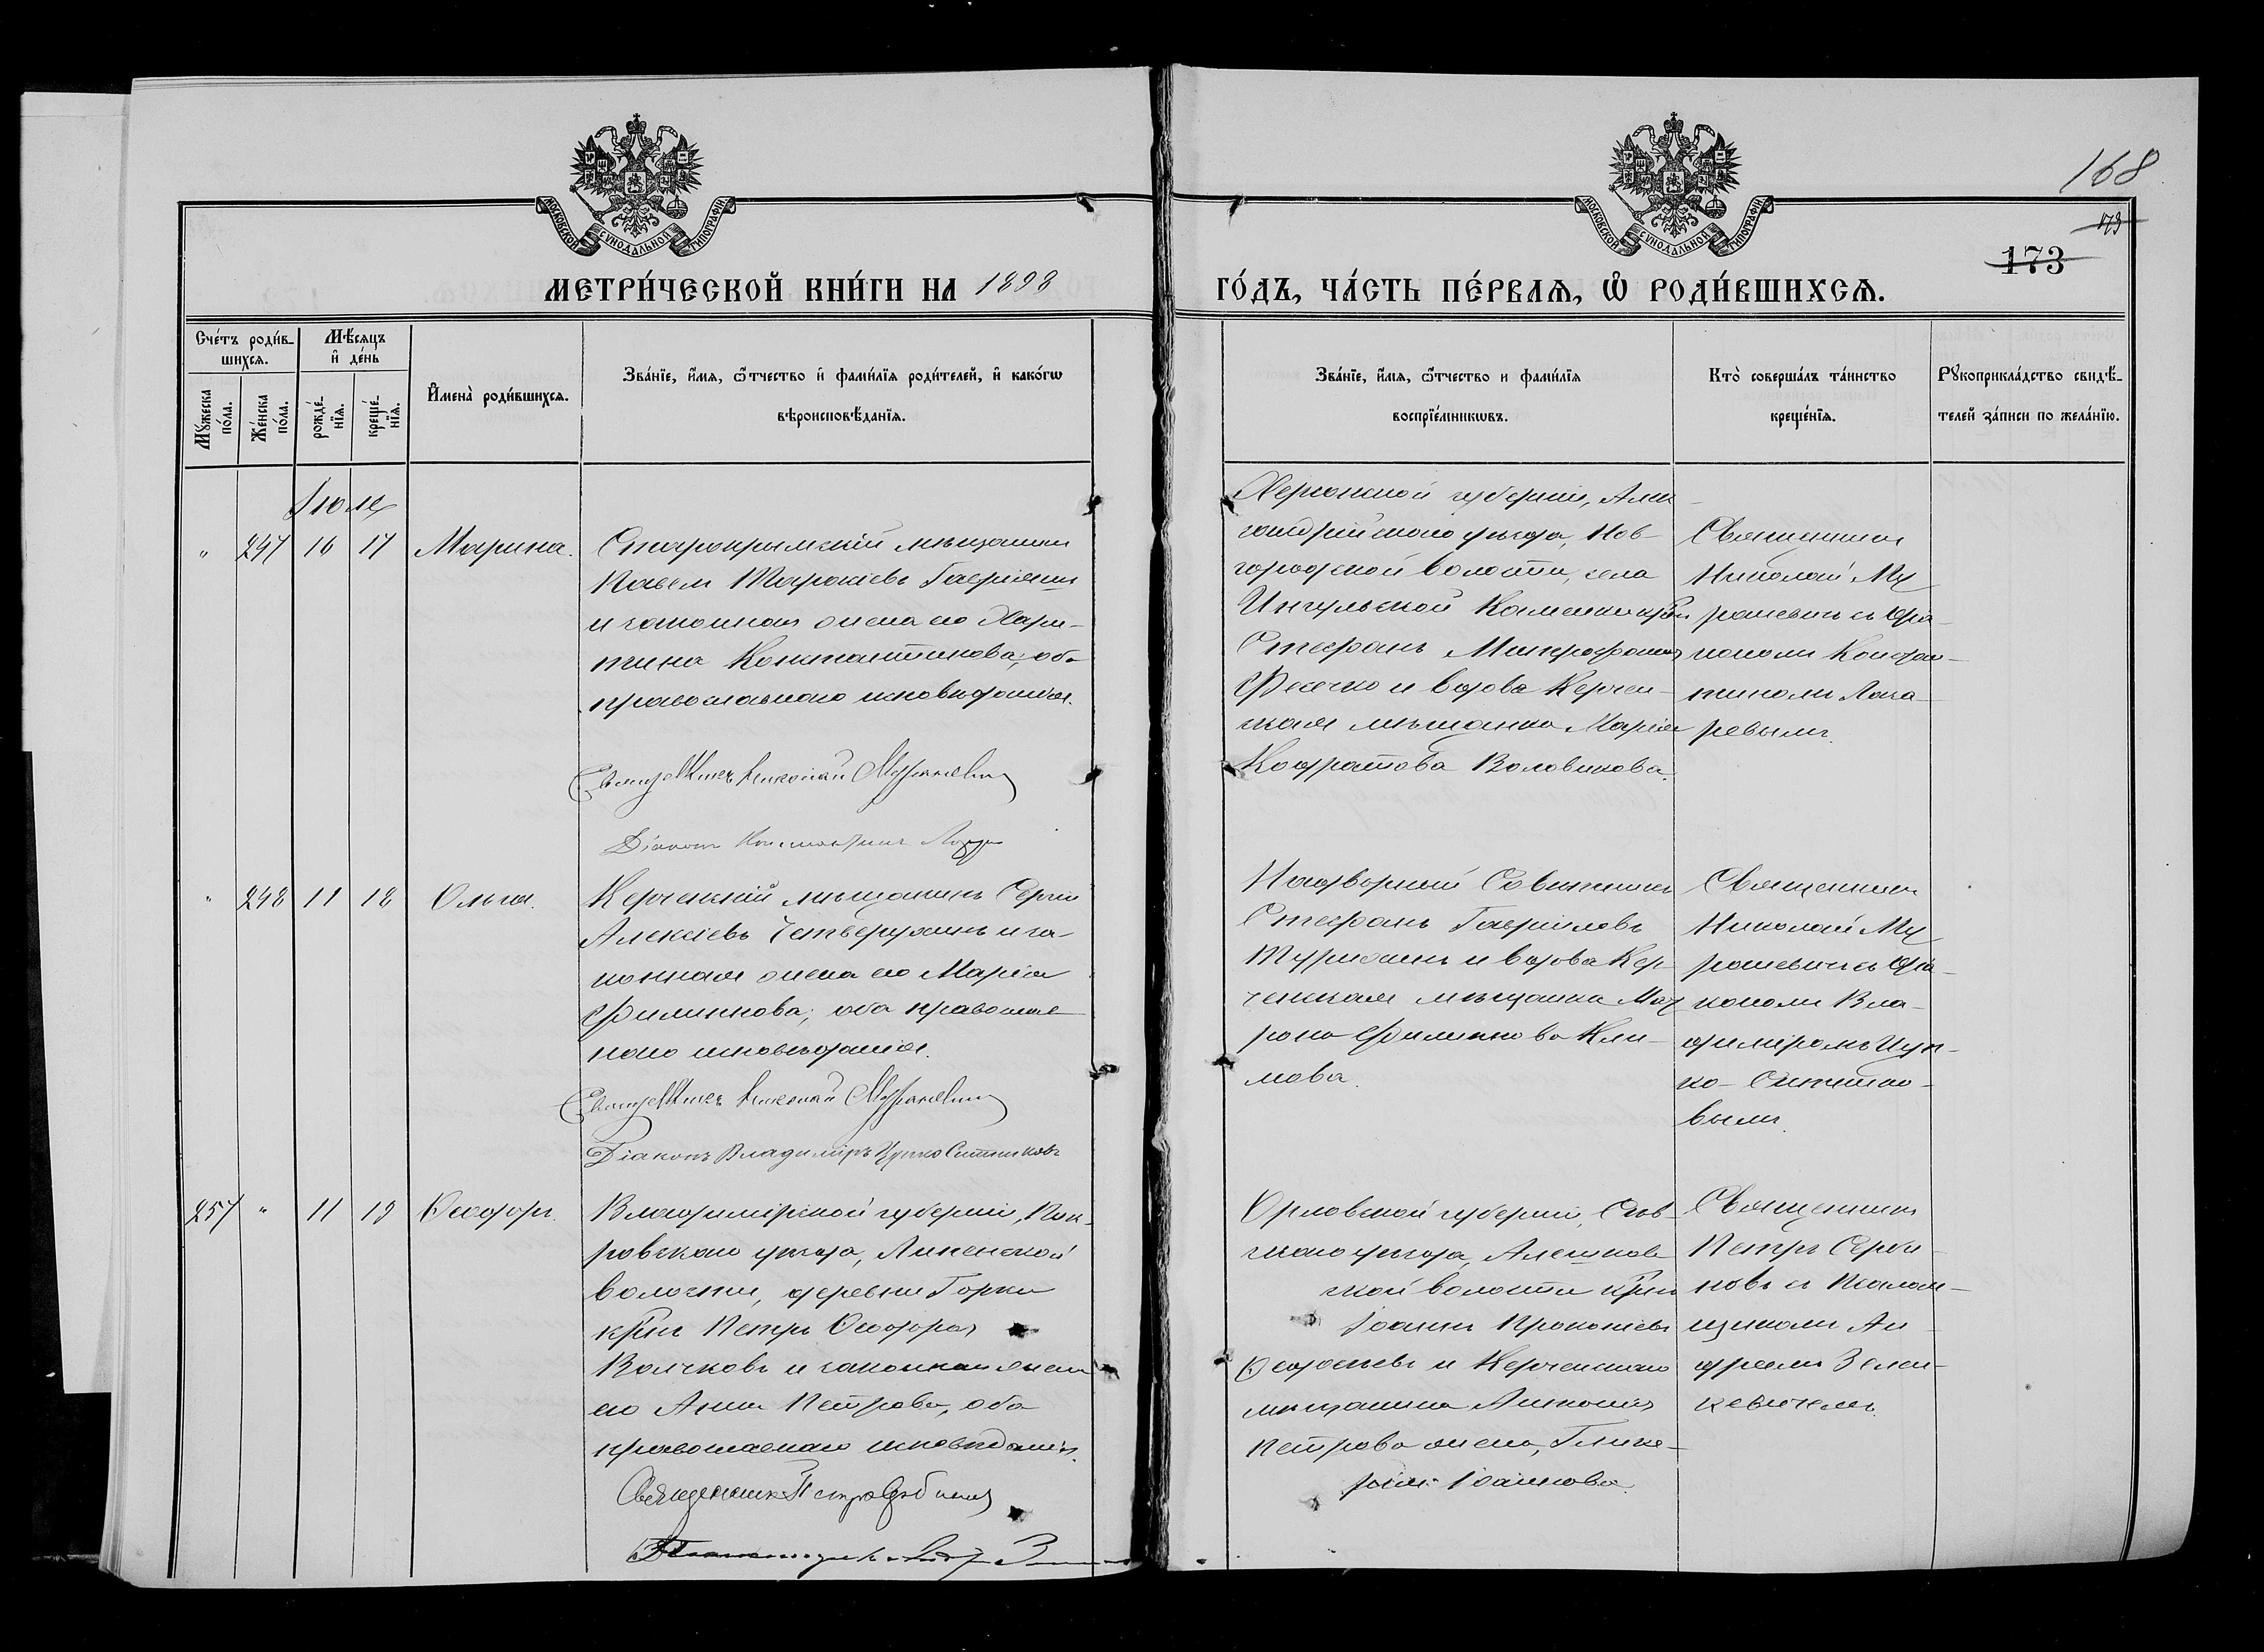 168
173
173
МОСКОВСКОЙ СУНОДАЛЬНОЙ ТИПОГРАФІИ
МОСКОВСКОЙ СУНОДАЛЬНОЙ ТИПОГРАФІИ
МЕТРИ́ЧЕСКОЙ КНИ́ГИ НА 1898
ГО́ДЪ, ЧА́СТЬ ПЕ́РВАѦ, Ѡ РОДИ́ВШИХСѦ.
Сче́тъ роди́в-
шихсѧ.
Мѣ́сѧцъ
и де́нь
Мꙋ́жеска
по́ла.
Же́нска
по́ла.
рожде́-
нїѧ.
креще́-
нїѧ.
И҆мена̀ роди́вшихсѧ.
Зва́нїе, и҆́мѧ, ѻ҆́тчество и҆ фами́лїѧ роди́телей, и҆ како́гѡ
вѣроисповѣ́данїѧ.
Зва́нїе, и҆́мѧ, ѻ҆́тчество и фами́лїѧ
воспрїе́мникѡвъ.
Кто̀ соверша́лъ та́инство
креще́нїѧ.
Рꙋкоприкла́дство свидѣ́-
телей за́писи по жела́нїю.
Іюля
" 247 16 17 Марина.
Старокрымскій мѣщанин
Павел Тарасіевъ
и законная жена его Хари-
тина Константинова, оба
православнаго исповѣданія.
Священникъ Николай Мурашевич
Діаконъ Константинъ
Херсонской губерніи, Алек
сандрійскаго уѣзда, Нов-
городской волости, села
Ингульской Каменки кр-нъ
Стефанъ Митрофановъ
и вдова Керчен-
ская мѣщанка Марія
Кодратова Воловикова.
Священникъ
Николай Му
рашевичъ съ діа-
кономъ Констан-
тиномъ Лаза-
ревымъ.
" 248 11 18 Ольга.
Керченскій мѣщанинъ Сергій
Алексіевъ и за-
конная жена его Марія
Филиппова; оба православ
наго исповѣданія.
Священникъ Николай Мурашевич
Діаконъ Владиміръ Цупко Ситниковъ
Надворный Совѣтникъ
Стефанъ Гавриловъ
и вдова Кер-
ченская мѣщанка Мат
рона Филиппова Кли-
мова.
Священникъ
Николай Му
рашевичъ съ діа-
кономъ Вла-
диміромъ Цуп-
ко-Ситнико-
вымъ.
257 " 11 19 Ѳеодоръ.
Владимірской губерніи, Пок-
ровскаго уѣзда, Липенской
волости, деревни Горки
кр-нъ Петръ Ѳеодоров
Волчковъ и законная жена
его Анна Петрова, оба
православнаго исповѣданія.
Священникъ Петръ Сербиновъ
Орловской губерніи, Сѣв-
скаго уѣзда, Алешков
ской волости кр-нъ
Іоаннъ Прокопіевъ
Ѳедосѣевъ и Керченскаго
мѣщанина Антонія
Петрова жена, Глике-
рія Іоаннова.
Священникъ
Петръ Серби-
новъ съ Псалом-
щикомъ Ан-
дреемъ Зелен-
кевичемъ.